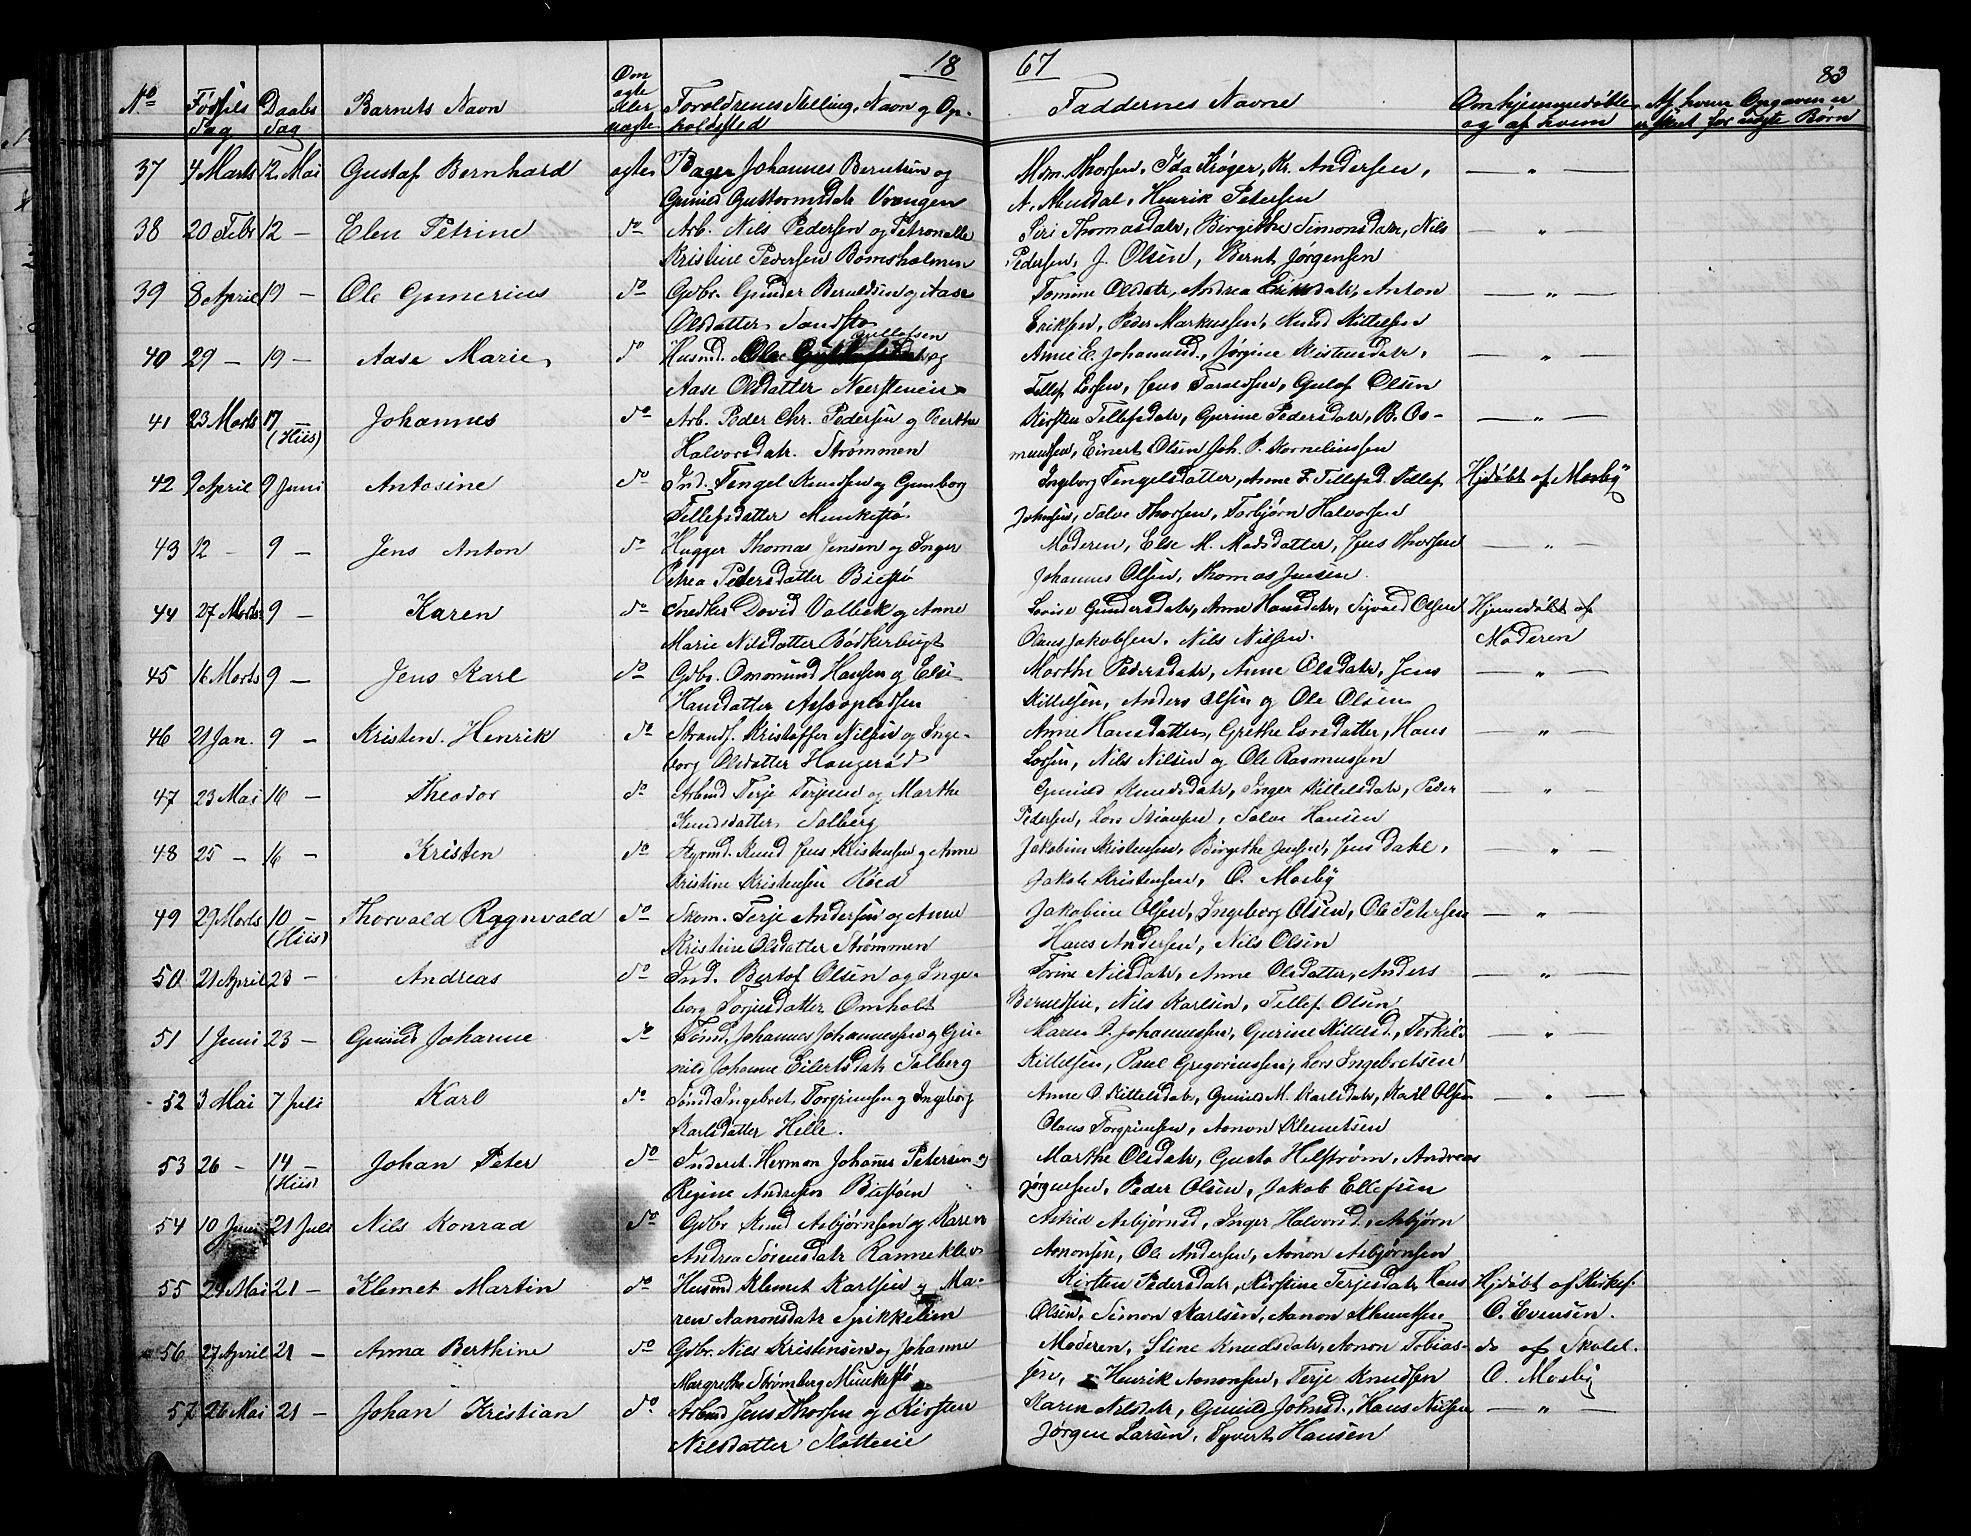 18 67 83
No Fødsels Dag Daabs Dag Barnets Navn Om ægte eller uægte Forældrenes Stilling, Navn og Opholdssted Faddernes Navne Om hjemmedøbte og af hvem Af hvem Opgaven er
for uægte Børn
37 4 Marts 12. Mai Gustaf Bernhard ægte Bager Johannes Berntsen og Mdm. Thorsen, Ida Krøger, Kr. Andersen, — " —
Gunild Guttormsdatr Vrængen A. Mersdal, Henrik Petersen
38 20 Febr 12 — Elen Petrine do Arb. Nils Pedersen og Petronelle Siri Thomasdatr, Birgithe Simonsdatr, Nils — " —
Kristine Pedersen Bomsholmen Pedersen, J. Olsen, Bernt Jørgensen
39 8 April 19 — Ole Gunerius do Gdbr. Gunder Berntsen og Aase Tomine Olsdatr, Andrea Eriksdatr, Anton — " —
Olsdatter Sandstø Eriksen, Peder Markussen, Knud Kittelsen
Gullofsen
40 29 — 19 — Aase Marie do Husmd. Ole og Anne E. Johannesd., Jørgine Kistensdatr, — " —
Aase Olsdatter Neersteneie Tellef Larsen, Jens Taraldsen, Gulof Olsen
41 23 Marts 17 — Johannes do Arb. Peder Chr. Pedersen og Berthe Kirsten Tellefsdatr, Gurine Pedersdatr, B. Os- — " —
(Hiis) Halvorsdatr. Strømmen mundsen, Einert Olsen Joh. P. Korneliussen
42 9 April 9 Juni Antosine do Ind. Tengel Knudsen og Gunborg Ingeborg Tengelsdatter, Anne T. Tellefsd. Tellef Hjdøbt af Mosby
Tellefsdatter Munkestø Johnsen, Salve Thorsen, Torbjørn Halvorsen
43 12 — 9 — Jens Anton do Hugger Thomas Jensen og Inger Moderen, Else M. Madsdatter, Jens Thorsen — " —
Petrea Pedersdatter Biestø Johannes Olsen, Thomas Jensen.
44 27 Marts 9 — Karen do Snedker David Valbek og Anne Lovise Gundersdatr, Anne Hansdatr, Sigvald Olsen Hjemmedøbt af
Marie Nilsdatter Bødkerbugt Olaus Jakobsen, Nils Nilsen. Moderen
45 16 Marts 9 — Jens Karl do Gdbr. Omomund Hansen og Else Marthe Pedersdatr, Anne Olsdatr, Jens — " —
Hansdatter Assopladsen Kittelsen, Anders Olsen og Ole Olsen
46 21 Jan. 9 — Kristen Henrik do Strands. Kristoffer Nilsen og Inge- Anne Hansdatter, Grethe Larsdatter, Hans — " —
borg Olsdatter Haugerød Larsen, Nils Nilsen og Ole Rasmussen
47 23 Mai 16 — Theodor do Arbmd Terje Terjesen og Marthe Gunild Knudsdatr, Inger Kittelsdatr, Peder — " —
Knudsdatter Salberg Pedersen, Lars Stiansen, Salve Hansen
48 25 — 16 — Kristen do Styrmd. Knud Jens Kristensen og Anne Jakobine Kristensen, Birgethe Jensen, Jens Dahl, — " —
Kristine Kristensen Røed Jakob Kristensen, O. Mosby
49 29 Marts 10 — Thorvald Ragnvald do Skom. Terje Andersen og Anne Jakobine Olsen, Ingeborg Olsen, Ole Petersen — " —
(Hiis) Kristine Olsdatter Strømmen Hans Andersen, Nils Olsen
50 21 April 23 — Andreas do Ind. Bertof Olsen og Inge- Torine Nilsdatr, Anne Olsdatter, Anders — " —
borg Torjusdatter Omholt Berntsen, Nils Karlsen, Tellef Olsen
51 1 Juni 23 — Gunild Johanne do Tømd. Johannes Johannessen og Gu- Maren O. Johannessen, Gurine Kittelsd., Terkel — " —
nild Johanne Eilertsdatr Salberg Kittelsen, Paul Gregoriussen, Lars Ingebretsen
52 3 Mai 7 Juli Karl do Tømd Ingebret Torgrimsen og Ingeborg Anne O. Kittelsdatr, Gunild M. Karlsdatr, Karl Olsen — " —
Karlsdatter Hille. Olaus Torgrimsen, Aanon Klemetsen
53 26 — 14 — Johan Peter do Inderst. Herman Johanes Petersen og Marthe Olsdatr, Gusta Helstrøm, Andreas
(Hiis) Regine Andresen Biestøen Jørgensen, Peder Olsen, Jakob Ellefsen
54 10 Juni 21 Juli Nils Konrad do Gdbr Knud Asbjørnsen og Karen Astrid Asbjørnsd, Inger Halvorsd., Asbjørn
Andrea Sørensdatr Ranneklev Aanonsen, Ole Andersen, Aanon Asbjørnsen
55 29 Mai 21 — Klemet Martin do Husmd Klemet Karlsen og Ma- Kirsten Pedersdatr, Kirstine Terjesdatr Hans Hjdøbt af Kirkes.
ren Aanonsdatr Spikkelien Olsen, Simon Karlsen, Aanon Klemetsen O. Evensen.
56 27 April 21 — Anna Berthine do Gdbr. Nils Kristensen og Johanne Moderen, Stine Knudsdatr, Aanon Tobias- do af Skolel.
Margrethe Strømberg Munkestø sen, Henrik Aanonsen, Terje Knudsen O. Mosby
57 26 Mai 21 — Johan Kristian do Arbmd Jens Thorsen og Kirsten Karen Nilsdatr, Gunild Johnsd., Hans Nilsen — " —
Nilsdatter Slotteeie Jørgen Larsen, Syvert Hansen